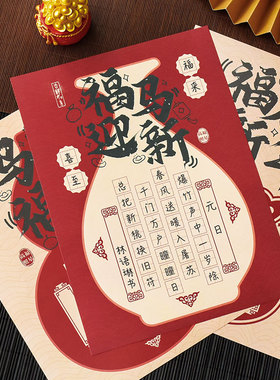 福马
迎新
福来
喜至
元日
爆竹声中一岁除
春风送暖入屠苏
千门万户瞳瞳日
总把新桃换旧符
林语琳书
马
福